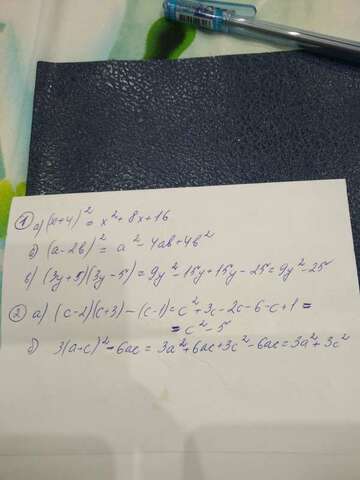 ① а) (x+4)² = x²+8x+16
б) (a-2b)² = a²-4ab+4b²
в) (3y+5)(3y-5) = 9y²-15y+15y-25 = 9y²-25
② а) (c-2)(c+3)-(c-1) = c²+3c-2c-6-c+1 =
= c²-5
б) 3(a+c)²-6ac = 3a²+6ac+3c²-6ac = 3a²+3c²